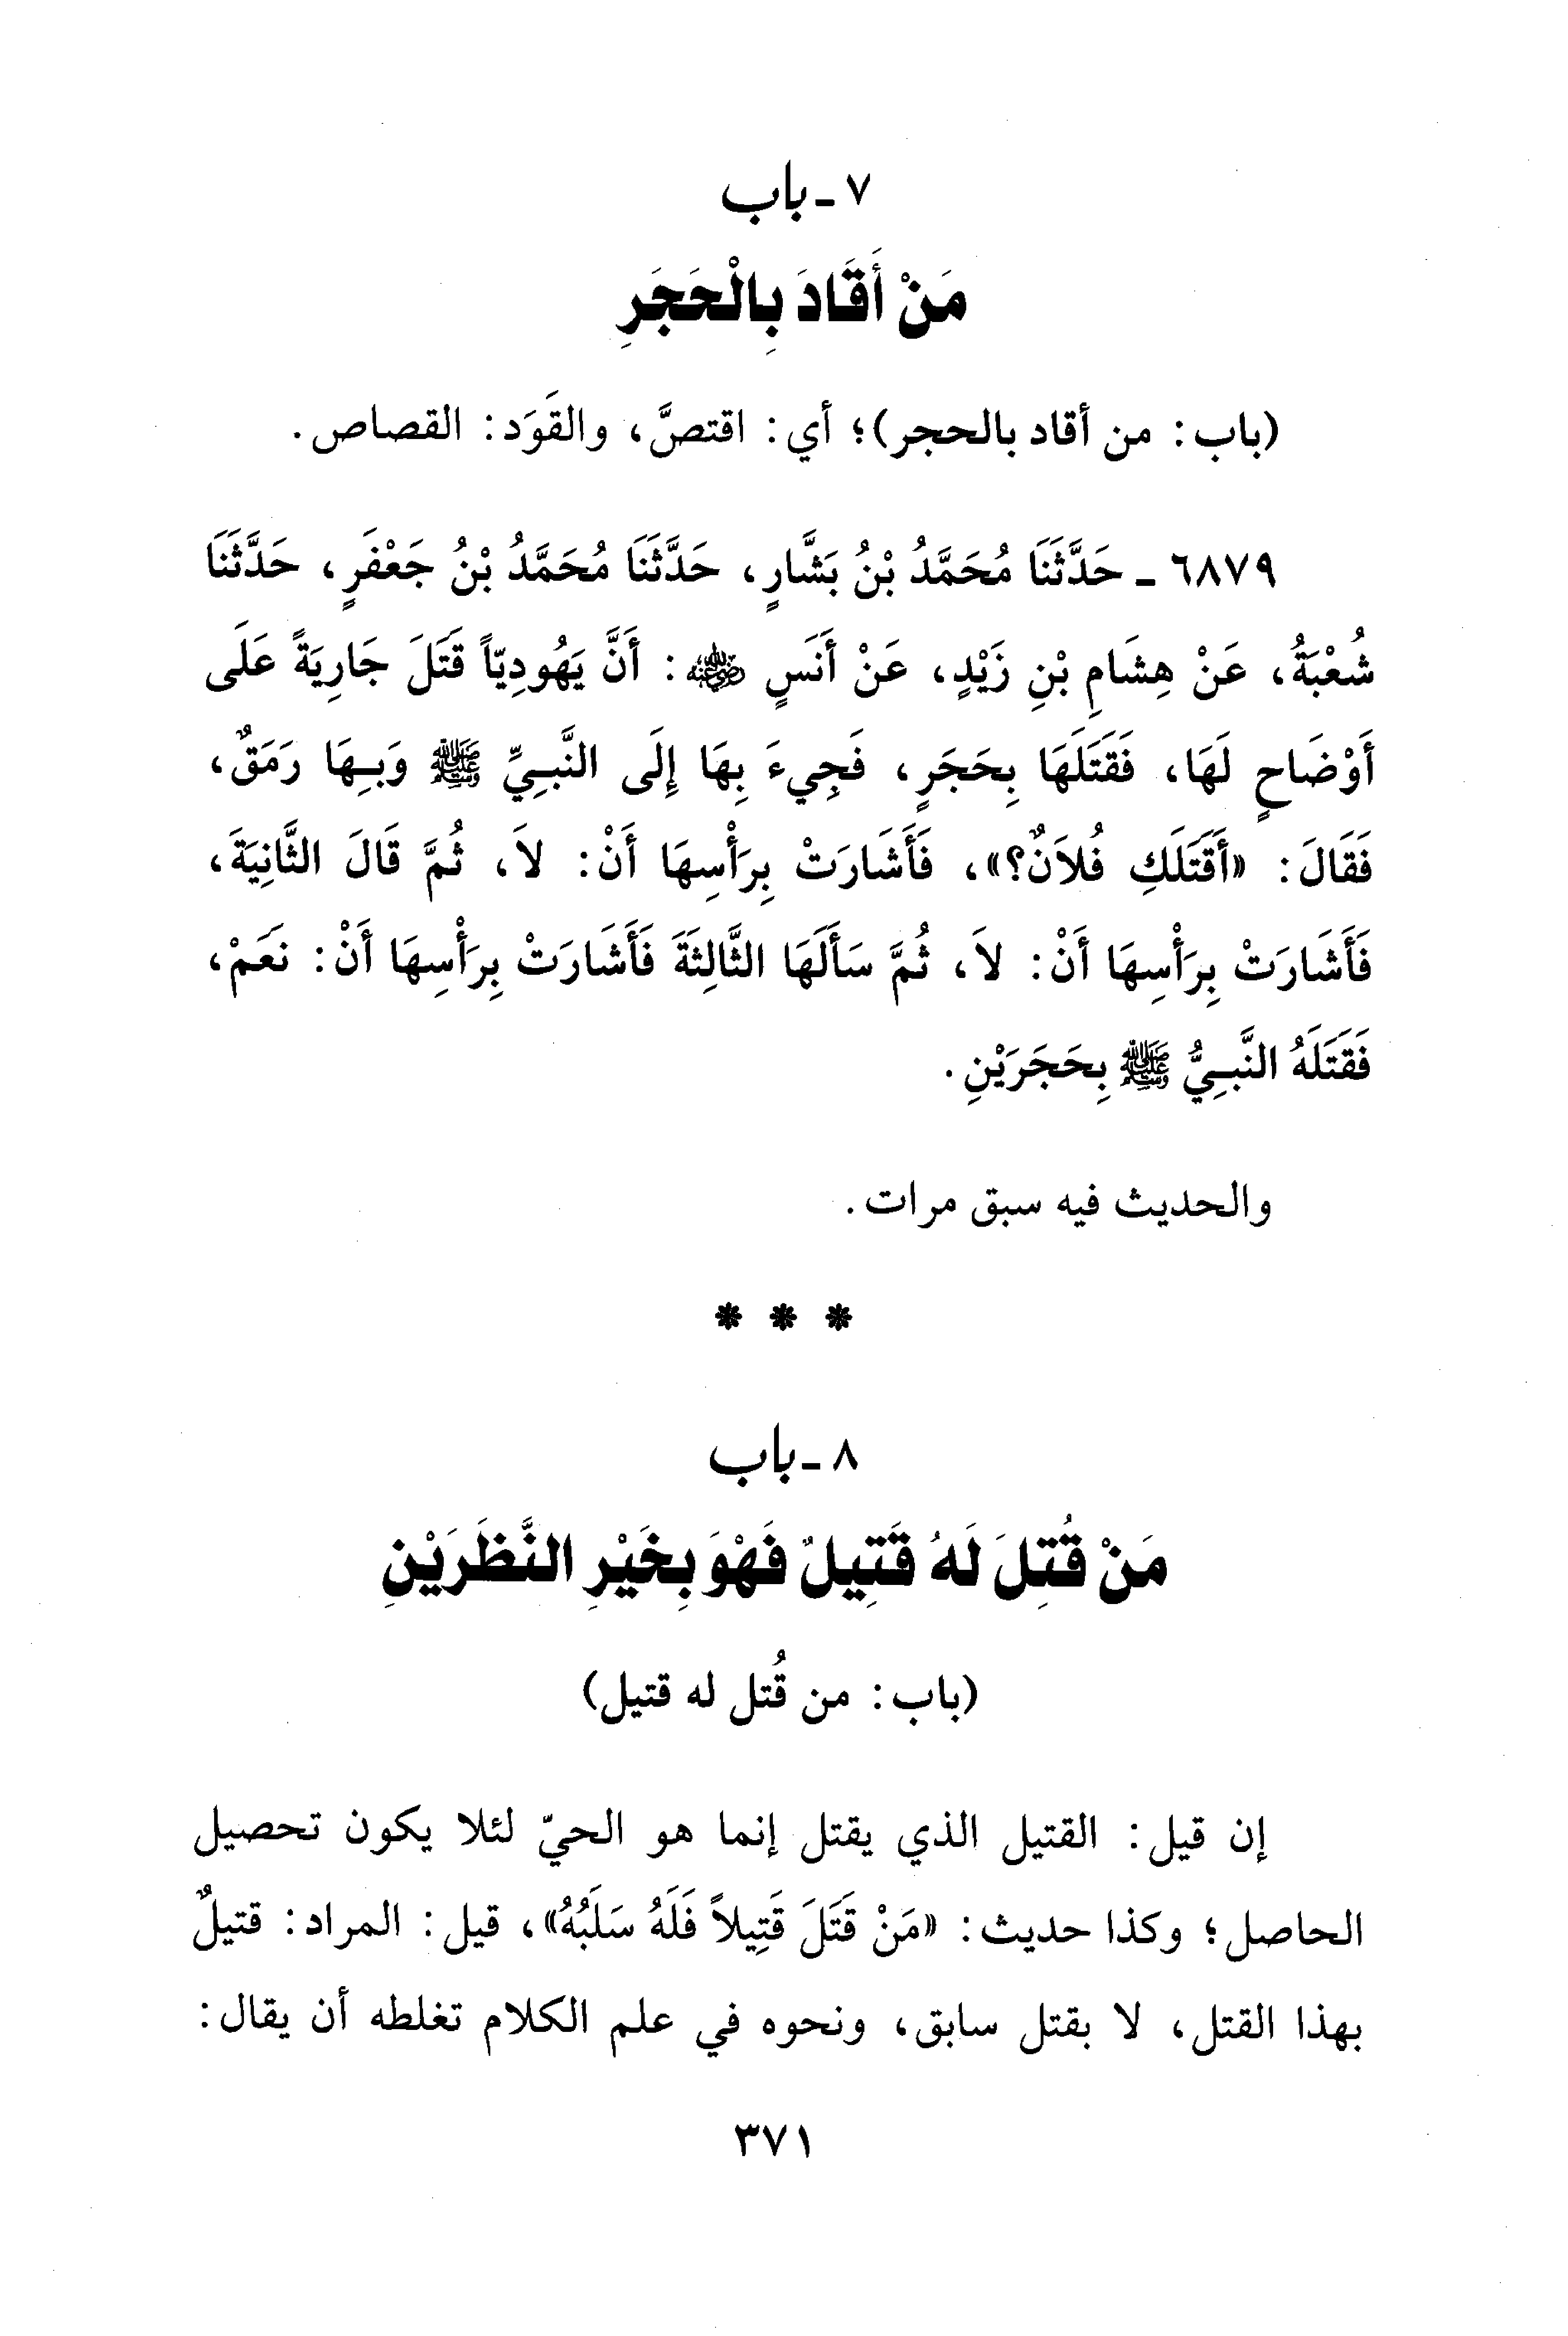 ٧ ـ باب
مَنْ أَقَادَ بِالْحَجَرِ
(باب: من أقاد بالحجر)؛ أي: اقتصَّ، والقَوَد: القصاص.
٦٨٧٩ ـ حَدَّثَنَا مُحَمَّدُ بْنُ بَشَّارٍ، حَدَّثَنَا مُحَمَّدُ بْنُ جَعْفَرٍ، حَدَّثَنَا
شُعْبَةُ، عَنْ هِشَامِ بْنِ زَيْدٍ، عَنْ أَنَسٍ رضي الله عنه: أَنَّ يَهُودِيّاً قَتَلَ جَارِيَةً عَلَى
أَوْضَاحٍ لَهَا، فَقَتَلَهَا بِحَجَرٍ، فَجِيءَ بِهَا إِلَى النَّبِيِّ ﷺ وَبِهَا رَمَقٌ،
فَقَالَ: «أَقَتَلَكِ فُلاَنٌ؟»، فَأَشَارَتْ بِرَأْسِهَا أَنْ: لاَ، ثُمَّ قَالَ الثَّانِيَةَ،
فَأَشَارَتْ بِرَأْسِهَا أَنْ: لاَ، ثُمَّ سَأَلَهَا الثَّالِثَةَ فَأَشَارَتْ بِرَأْسِهَا أَنْ: نَعَمْ،
فَقَتَلَهُ النَّبِيُّ ﷺ بِحَجَرَيْنِ.
والحديث فيه سبق مرات.
* * *
٨ ـ باب
مَنْ قُتِلَ لَهُ قَتِيلٌ فَهْوَ بِخَيْرِ النَّظَرَيْنِ
(باب: من قُتل له قتيل)
إن قيل: القتيل الذي يقتل إنما هو الحيّ لئلا يكون تحصيل
الحاصل؛ وكذا حديث: «مَنْ قَتَلَ قَتِيلاً فَلَهُ سَلَبُهُ»، قيل: المراد: قتيلٌ
بهذا القتل، لا بقتل سابق، ونحوه في علم الكلام تغلطه أن يقال:
٣٧١